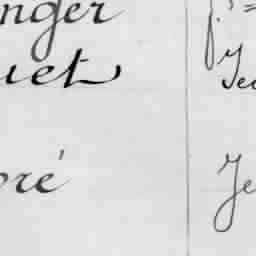 nger
uet
Je
oré
Je